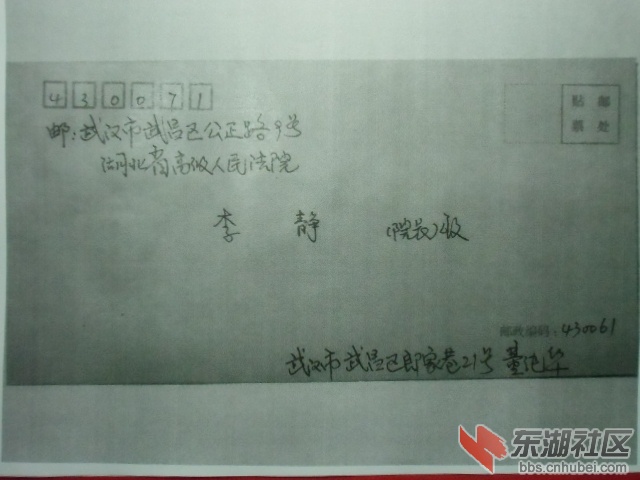 430071
贴邮
票处
邮:武汉市武昌区公正路9号
湖北省高级人民法院
李 静 (院长)收
邮政编码:430061
武汉市武昌区郎家巷21号 董
东湖社区
bbs.cnhubei.com